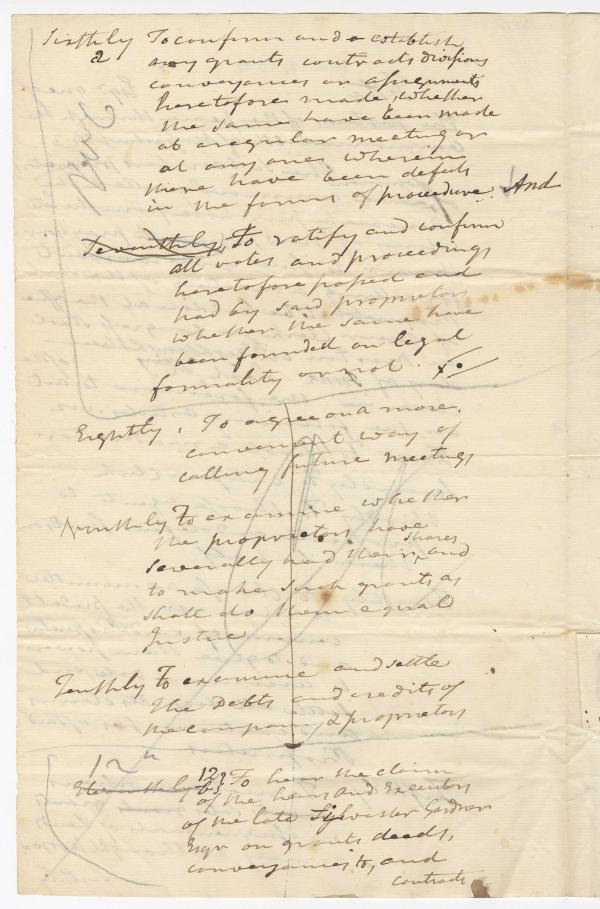 Sixthly To confirm and establish
2 any grants contracts divisions
conveyances or assignments
heretofore made, whether
the same have been made
at a regular meeting or
at any ones wherein
there have been defects
in the forms of procedure. And
Seventhly, To ratify and confirm
all votes and proceedings
heretofore passed and
had by said proprietors
whether the same have
been founded on legal
formality or not.
Eightly, To agree on a more
convenient way of
calling future meetings
Ninthly To examine whether
the proprietors have
severally had their shares and
to make such grants as
shall do them equal
Justice
Tenthly To examine and settle
the Debts and credits of
the company & proprietors
12th
Eleventhly 12 To hear the claim
of the heirs and Executors
of the late Sylvester Gardner
Esqr on grants deeds,
conveyances to, and
contracts